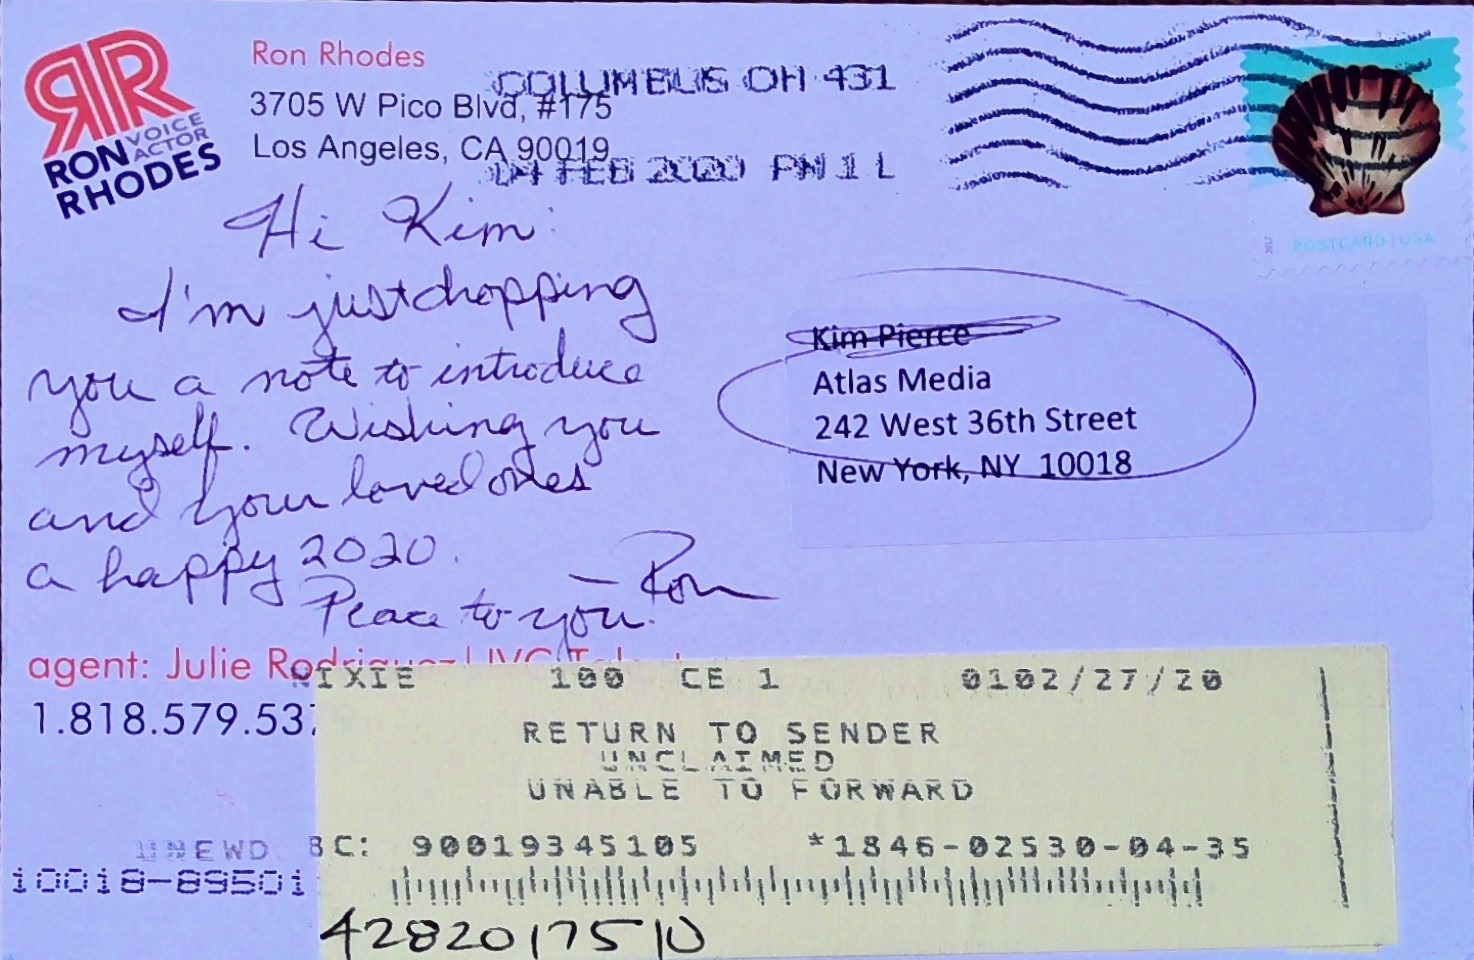 RR
RON VOICE ACTOR
RHODES
Ron Rhodes
3705 W Pico Blvd, #175
Los Angeles, CA 90019
COLUMBUS OH 431
04 FEB 2020 PM 1 L
POSTCARD | USA
2017
Hi Kim:
I'm just dropping
you a note to introduce
myself. Wishing you
and your loved ones
a happy 2020.
Peace to you.
— Ron
Kim Pierce
Atlas Media
242 West 36th Street
New York, NY 10018
agent: Julie Rodriguez | JVC
1.818.579.537
NIXIE 100 CE 1 0102/27/20
RETURN TO SENDER
UNCLAIMED
UNABLE TO FORWARD
BC: 90019345105 *1846-02530-04-35
10018-89501